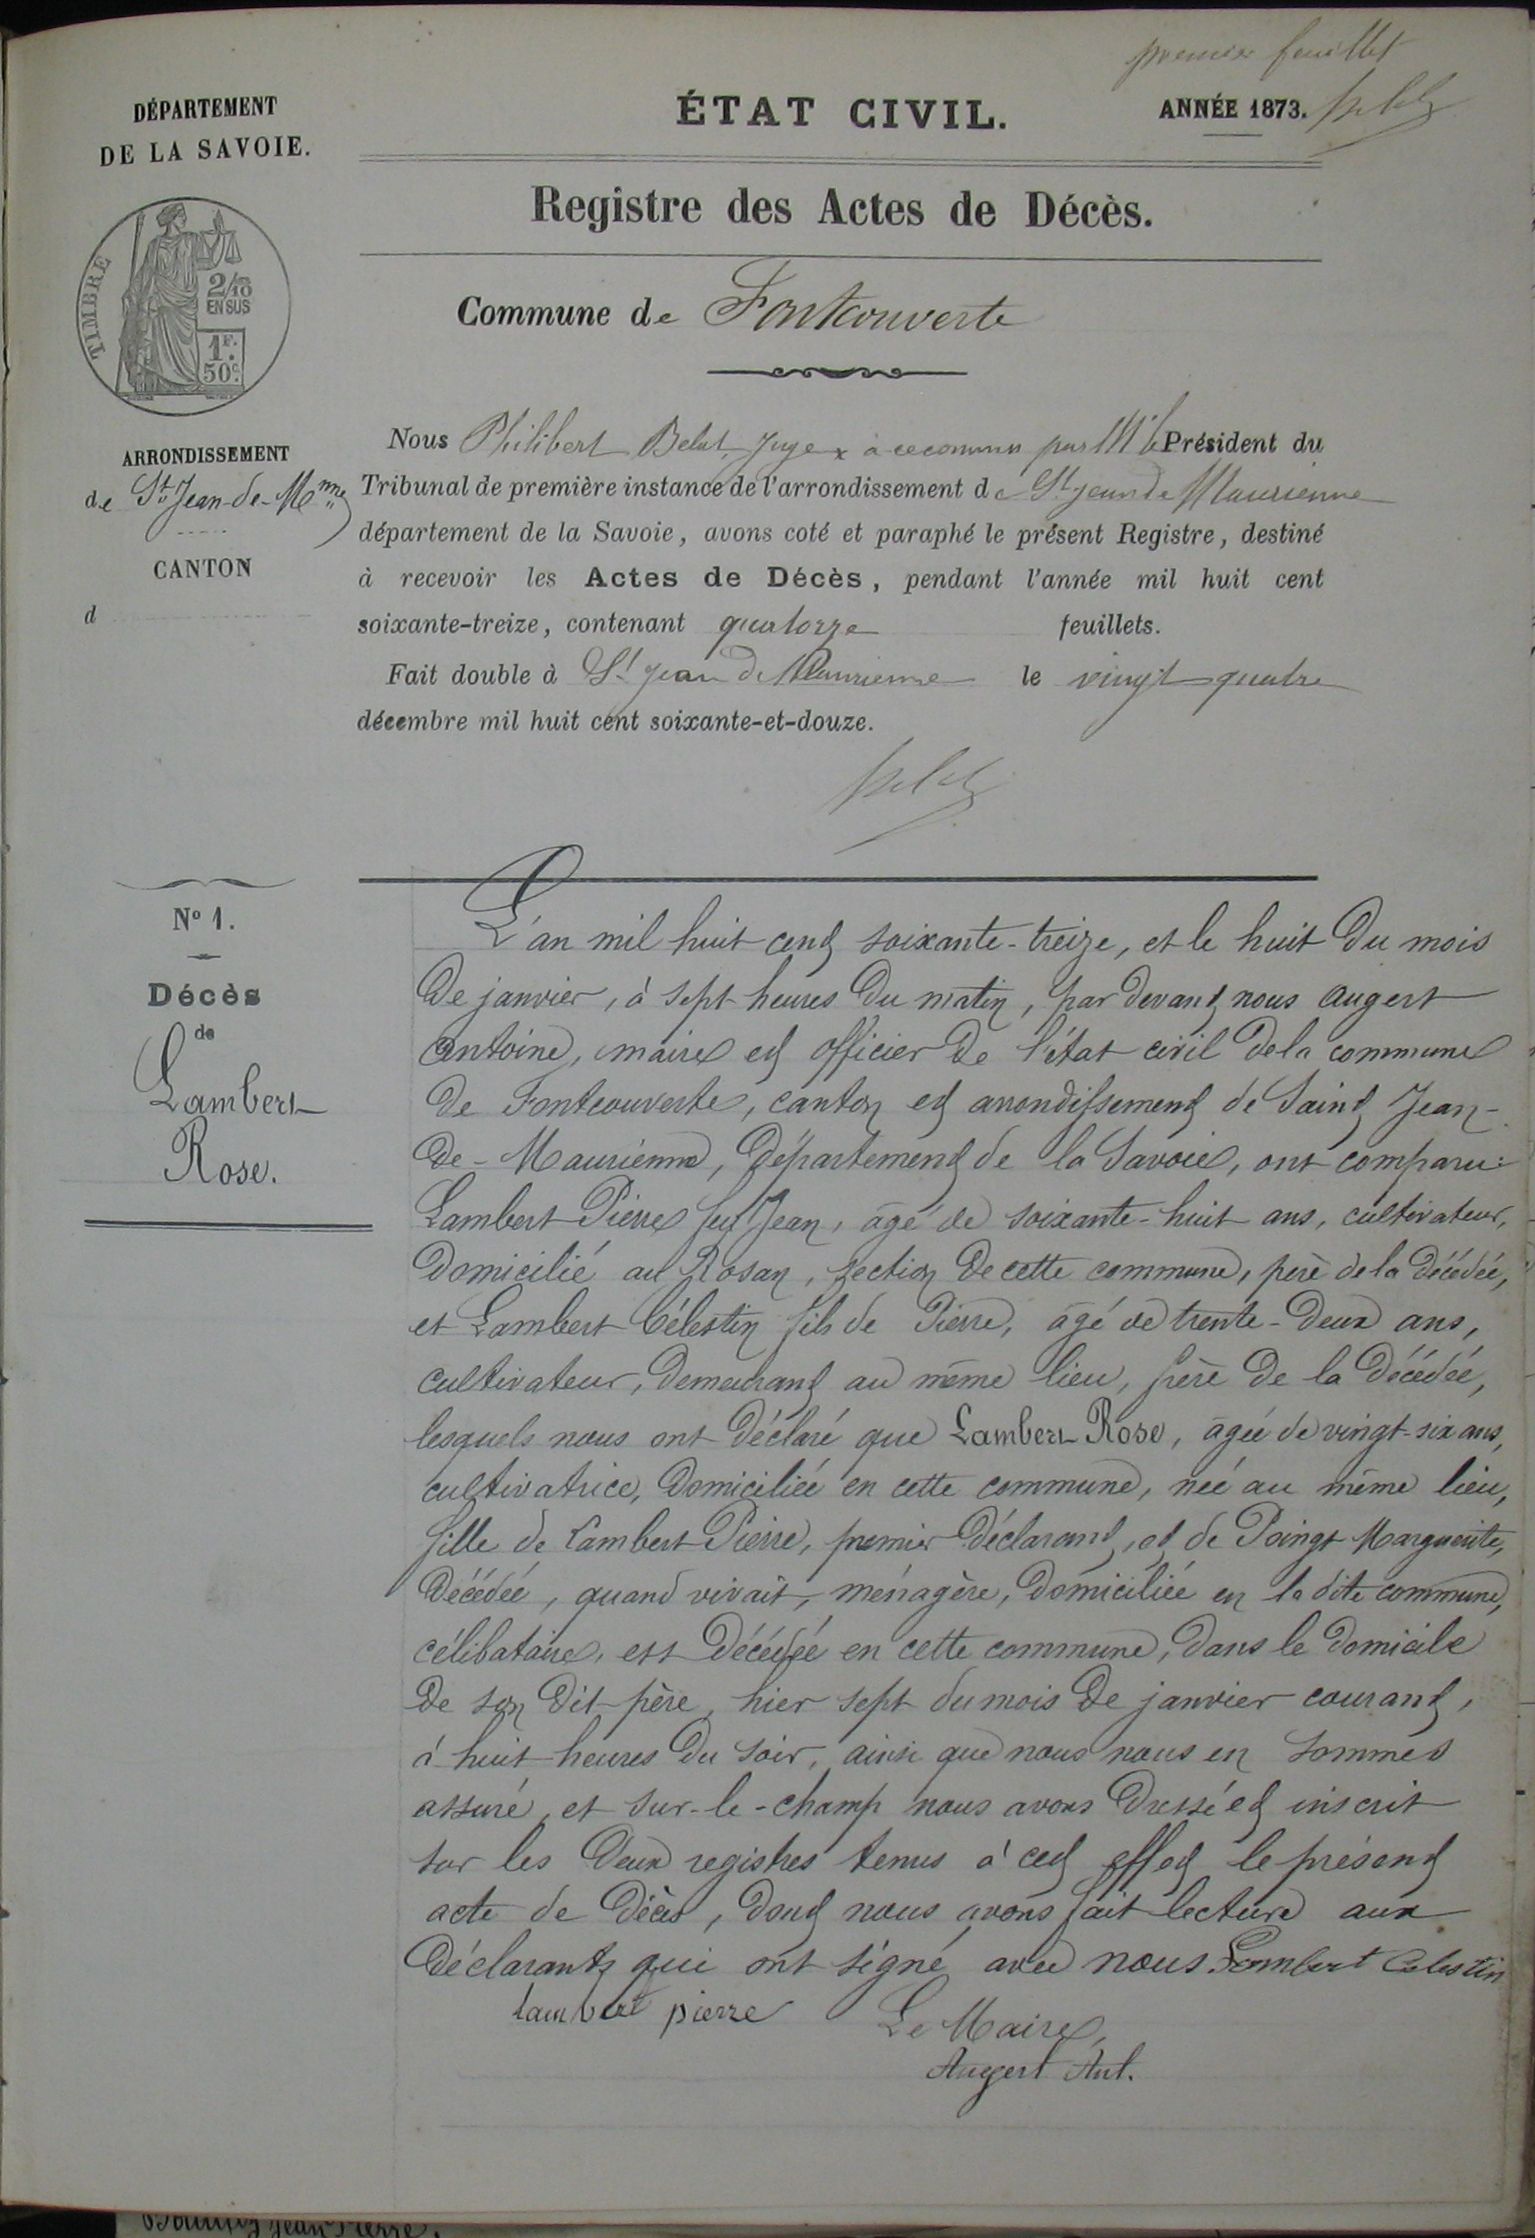 premier feuillet
DÉPARTEMENT
DE LA SAVOIE.
ÉTAT CIVIL.
ANNÉE 1873.
Registre des Actes de Décès.
TIMBRE
2/10
EN SUS
1F.
50c.
Commune de Fontcouverte
ARRONDISSEMENT
de St Jean-de-Mnne
CANTON
d
Nous Philibert Belat, Juge x à ce commis par Mr le Président du
Tribunal de première instance de l'arrondissement de St jean de Maurienne
département de la Savoie, avons coté et paraphé le présent Registre, destiné
à recevoir les Actes de Décès, pendant l'année mil huit cent
soixante-treize, contenant quatorze feuillets.
Fait double à St jean de Maurienne le vingt quatre
décembre mil huit cent soixante-et-douze.
No 1.
Décès
de
Lambert
Rose.
L'an mil huit cent soixante-treize, et le huit du mois
de janvier, à sept heures du matin, par devant nous Augert
Antoine, maire et officier de l'état civil de la commune
de Fontcouverte, canton et arrondissement de Saint Jean-
de-Maurienne, département de la Savoie, ont comparu:
Lambert Pierre feu Jean, âgé de soixante-huit ans, cultivateur,
domicilié au Rosan, section de cette commune, père de la décédée,
et Lambert Célestin fils de Pierre, âgé de trente-deux ans,
cultivateur, demeurant au même lieu, frère de la décédée,
lesquels nous ont déclaré que Lambert Rose, âgée de vingt-six ans,
cultivatrice, domiciliée en cette commune, née au même lieu,
fille de Lambert Pierre, premier déclarant, et de Poingt Marguerite,
décédée, quand vivait, ménagère, domiciliée en la dite commune,
célibataire, est décédée en cette commune, dans le domicile
de son dit père, hier sept du mois de janvier courant,
à huit heures du soir, ainsi que nous nous en sommes
assuré, et sur-le-champ nous avons dressé et inscrit
sur les deux registres tenus à cet effet le présent
acte de décès, dont nous avons fait lecture aux
déclarants qui ont signé avec nous. Lambert Celestin
lambert pierre
Le Maire,
Augert Ant.